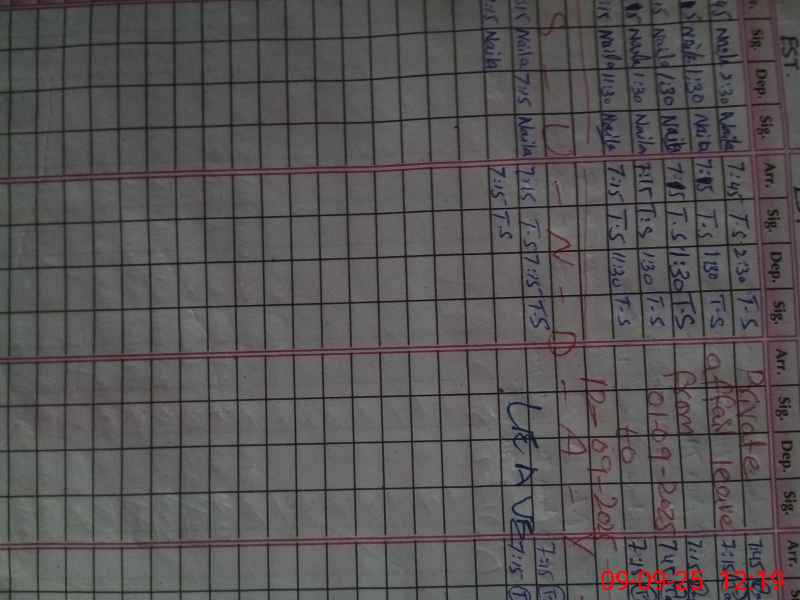 EST.
Sig. Dep. Sig. Arr. Sig. Dep. Sig. Arr. Sig. Dep. Sig. Arr.
:45 Naila 2:30 Naila 7:45 T.S 2:30 T.S Private 7:45
:15 Naila 1:30 Naila 7:15 T.S 1:30 T.S affair leave 7:15
:15 Naila 1:30 Naila 7:15 T.S 1:30 T.S from 7:15
:15 Naila 1:30 Naila 7:15 T.S 1:30 T.S 01-09-2025 7:15
:15 Naila 1:30 Naila 7:15 T.S 1:30 T.S to 7:15
12-09-2025
S - U - N - D - A - Y
:15 Naila 7:15 Naila 7:15 T.S 7:15 T.S LEAVE 7:15
:15 Naila 7:15 T.S 7:15
09-09-25 12:19